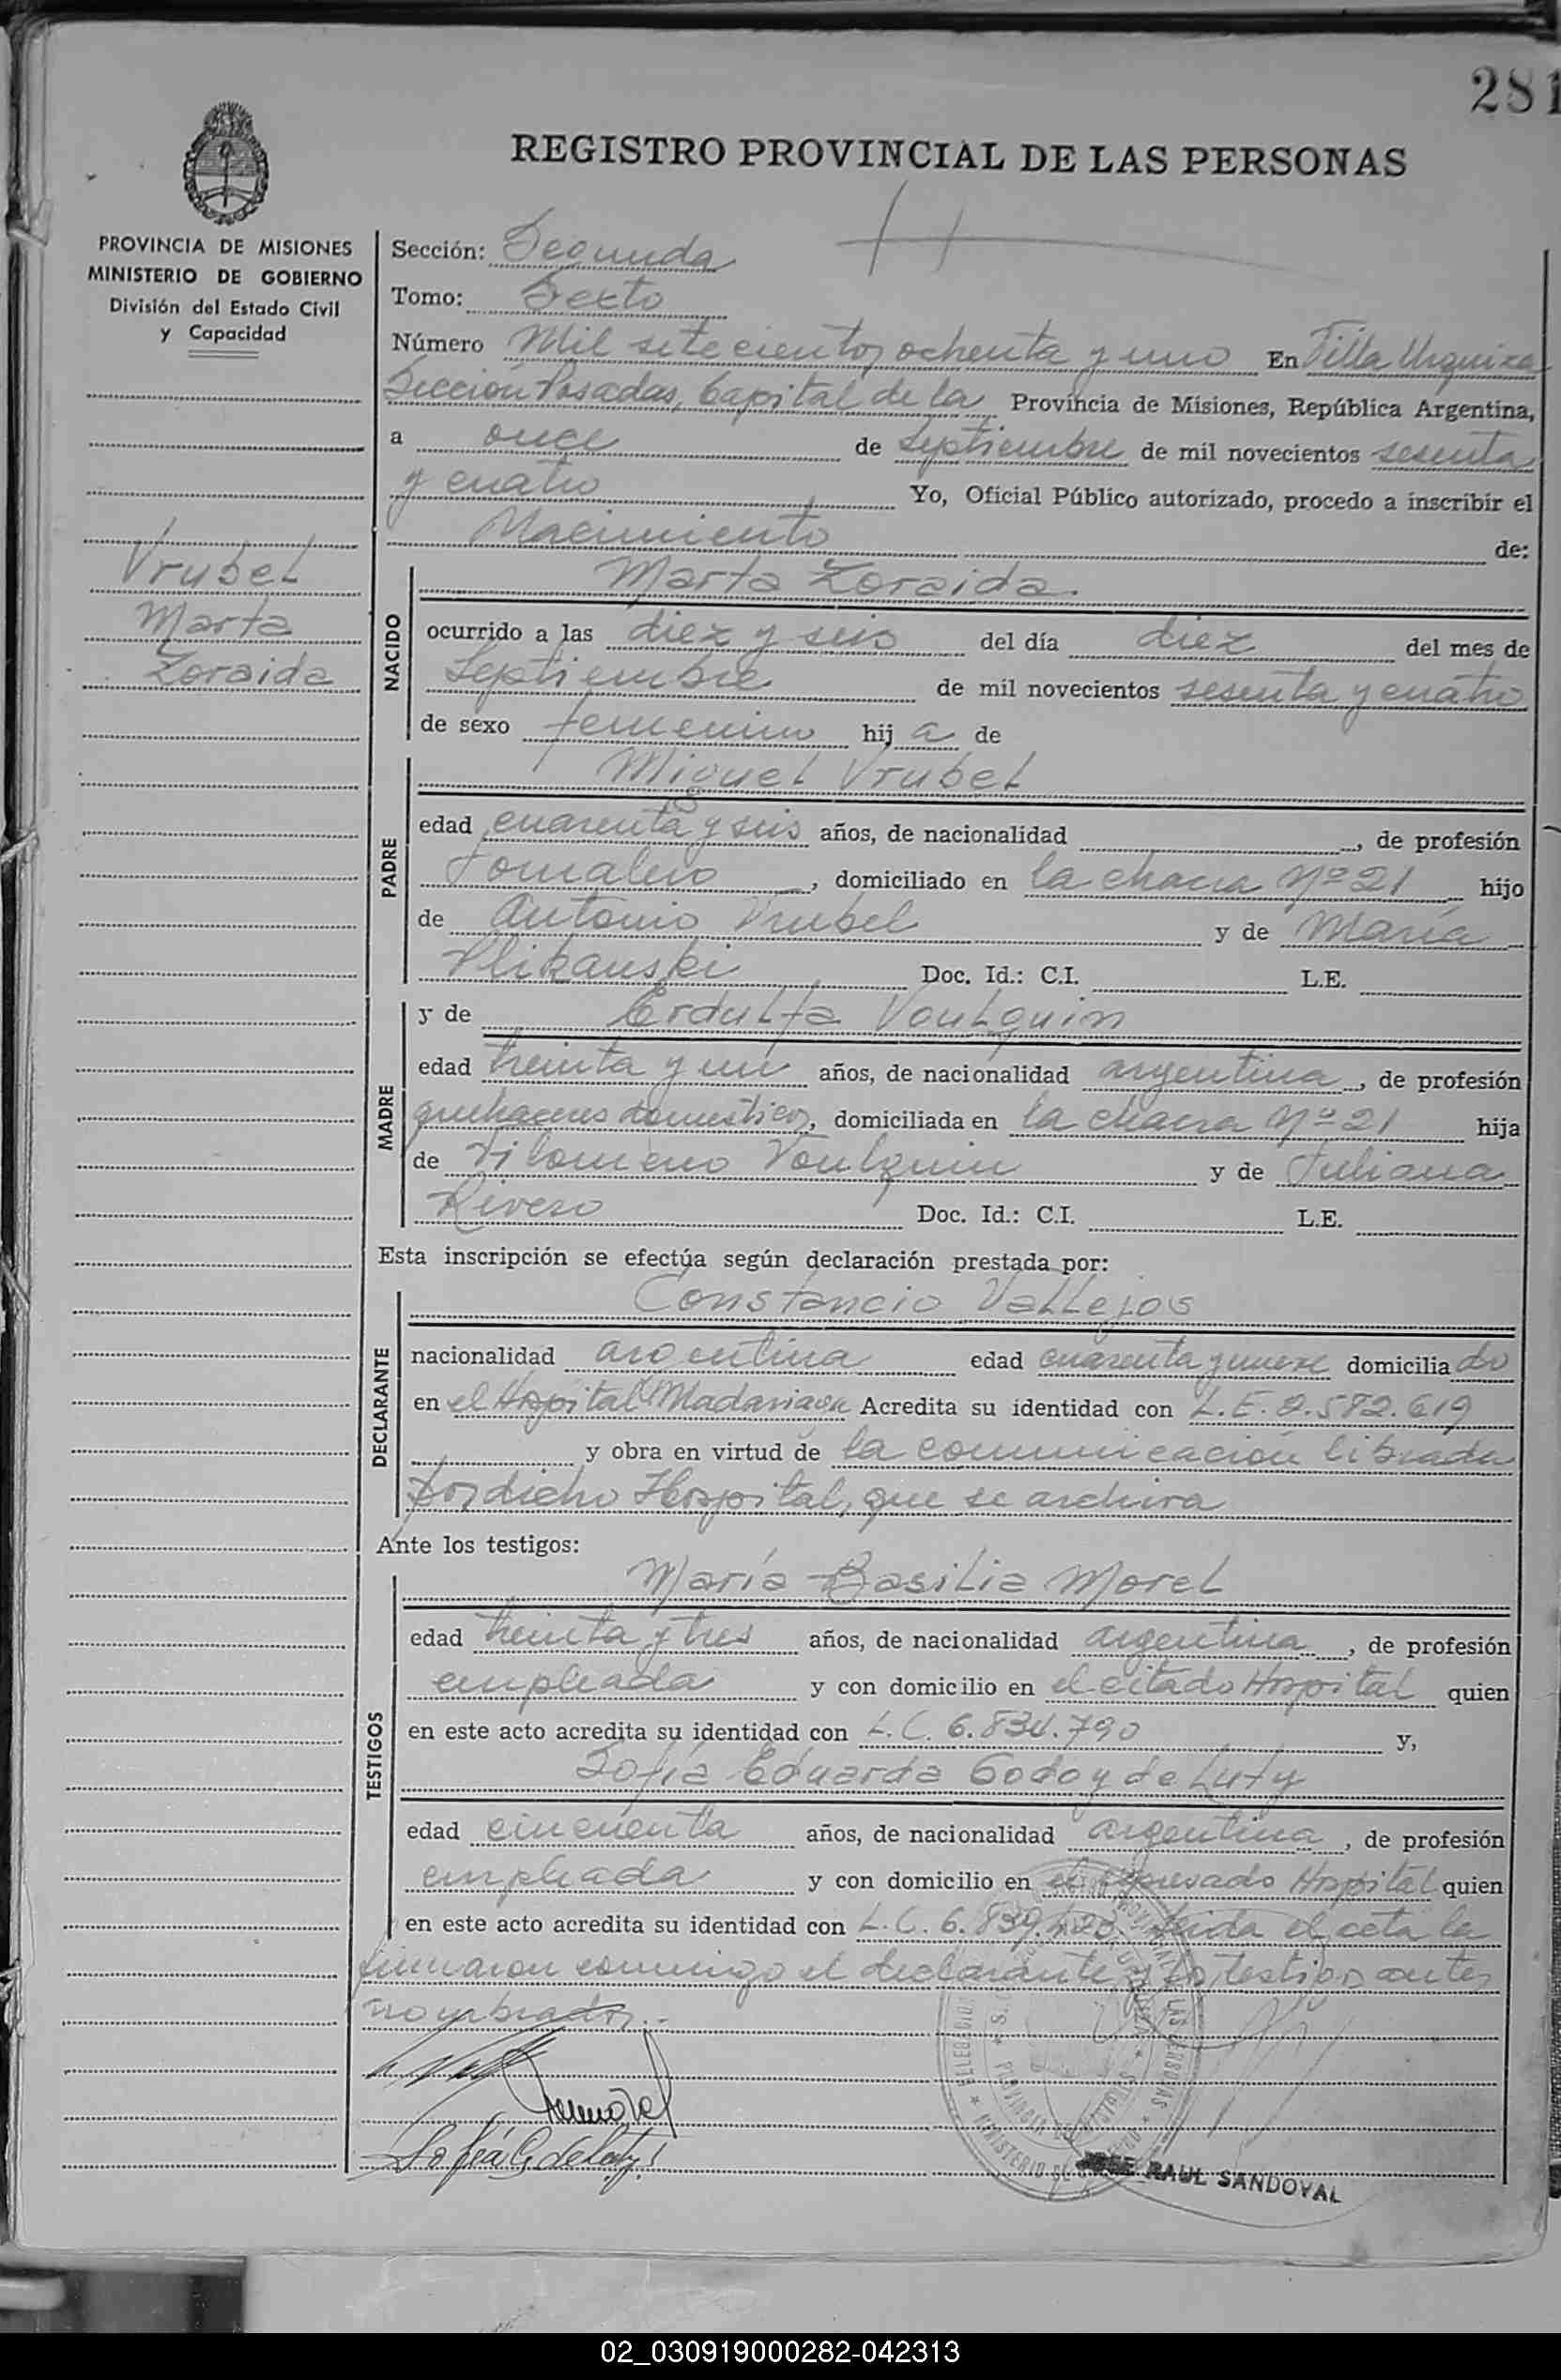 281
REGISTRO PROVINCIAL DE LAS PERSONAS
PROVINCIA DE MISIONES
MINISTERIO DE GOBIERNO
División del Estado Civil
y Capacidad
Vrubel
Marta
Zoraida
Sección: Segunda
Tomo: Sexto
Número Mil setecientos ochenta y uno En Villa Urquiza
Sección Posadas, Capital de la Provincia de Misiones, República Argentina,
a once de Septiembre de mil novecientos sesenta
y cuatro Yo, Oficial Público autorizado, procedo a inscribir el
Nacimiento de:
NACIDO
Marta Zoraida.
ocurrido a las diez y seis del día diez del mes de
Septiembre de mil novecientos sesenta y cuatro
de sexo femenino hij a de
PADRE
Miguel Vrubel
edad cuarenta y seis años, de nacionalidad , de profesión
Jornalero, domiciliado en la chacra Nº 21 hijo
de Antonio Vrubel y de María
Doc. Id.: C.I. L.E.
MADRE
y de Erdulfa Voulquin
edad treinta y un años, de nacionalidad argentina, de profesión
quehaceres domesticos, domiciliada en la chacra Nº 21 hija
de Filomeno Voulquin y de Juliana
Rivero Doc. Id.: C.I. L.E.
Esta inscripción se efectúa según declaración prestada por:
DECLARANTE
Constancio Vallejos
nacionalidad argentina edad cuarenta y nueve domicilia do
en el Hospital Madariaga Acredita su identidad con L.E. 2.582.619
y obra en virtud de la comunicación librada
por dicho Hospital, que se archiva
Ante los testigos:
TESTIGOS
María Basilia Morel
edad treinta y tres años, de nacionalidad argentina, de profesión
empleada y con domicilio en el citado Hospital quien
en este acto acredita su identidad con L.C. 6.834.790 y,
Sofía Eduarda Godoy de Luty
edad cincuenta años, de nacionalidad argentina, de profesión
empleada y con domicilio en el expresado Hospital quien
en este acto acredita su identidad con L.C. 6.839. Leida el acta la
firmaron conmigo el declarante y los testigos antes
nombrados.-
Sofía G. de Luty
JOSE RAUL SANDOVAL
02_030919000282-042313